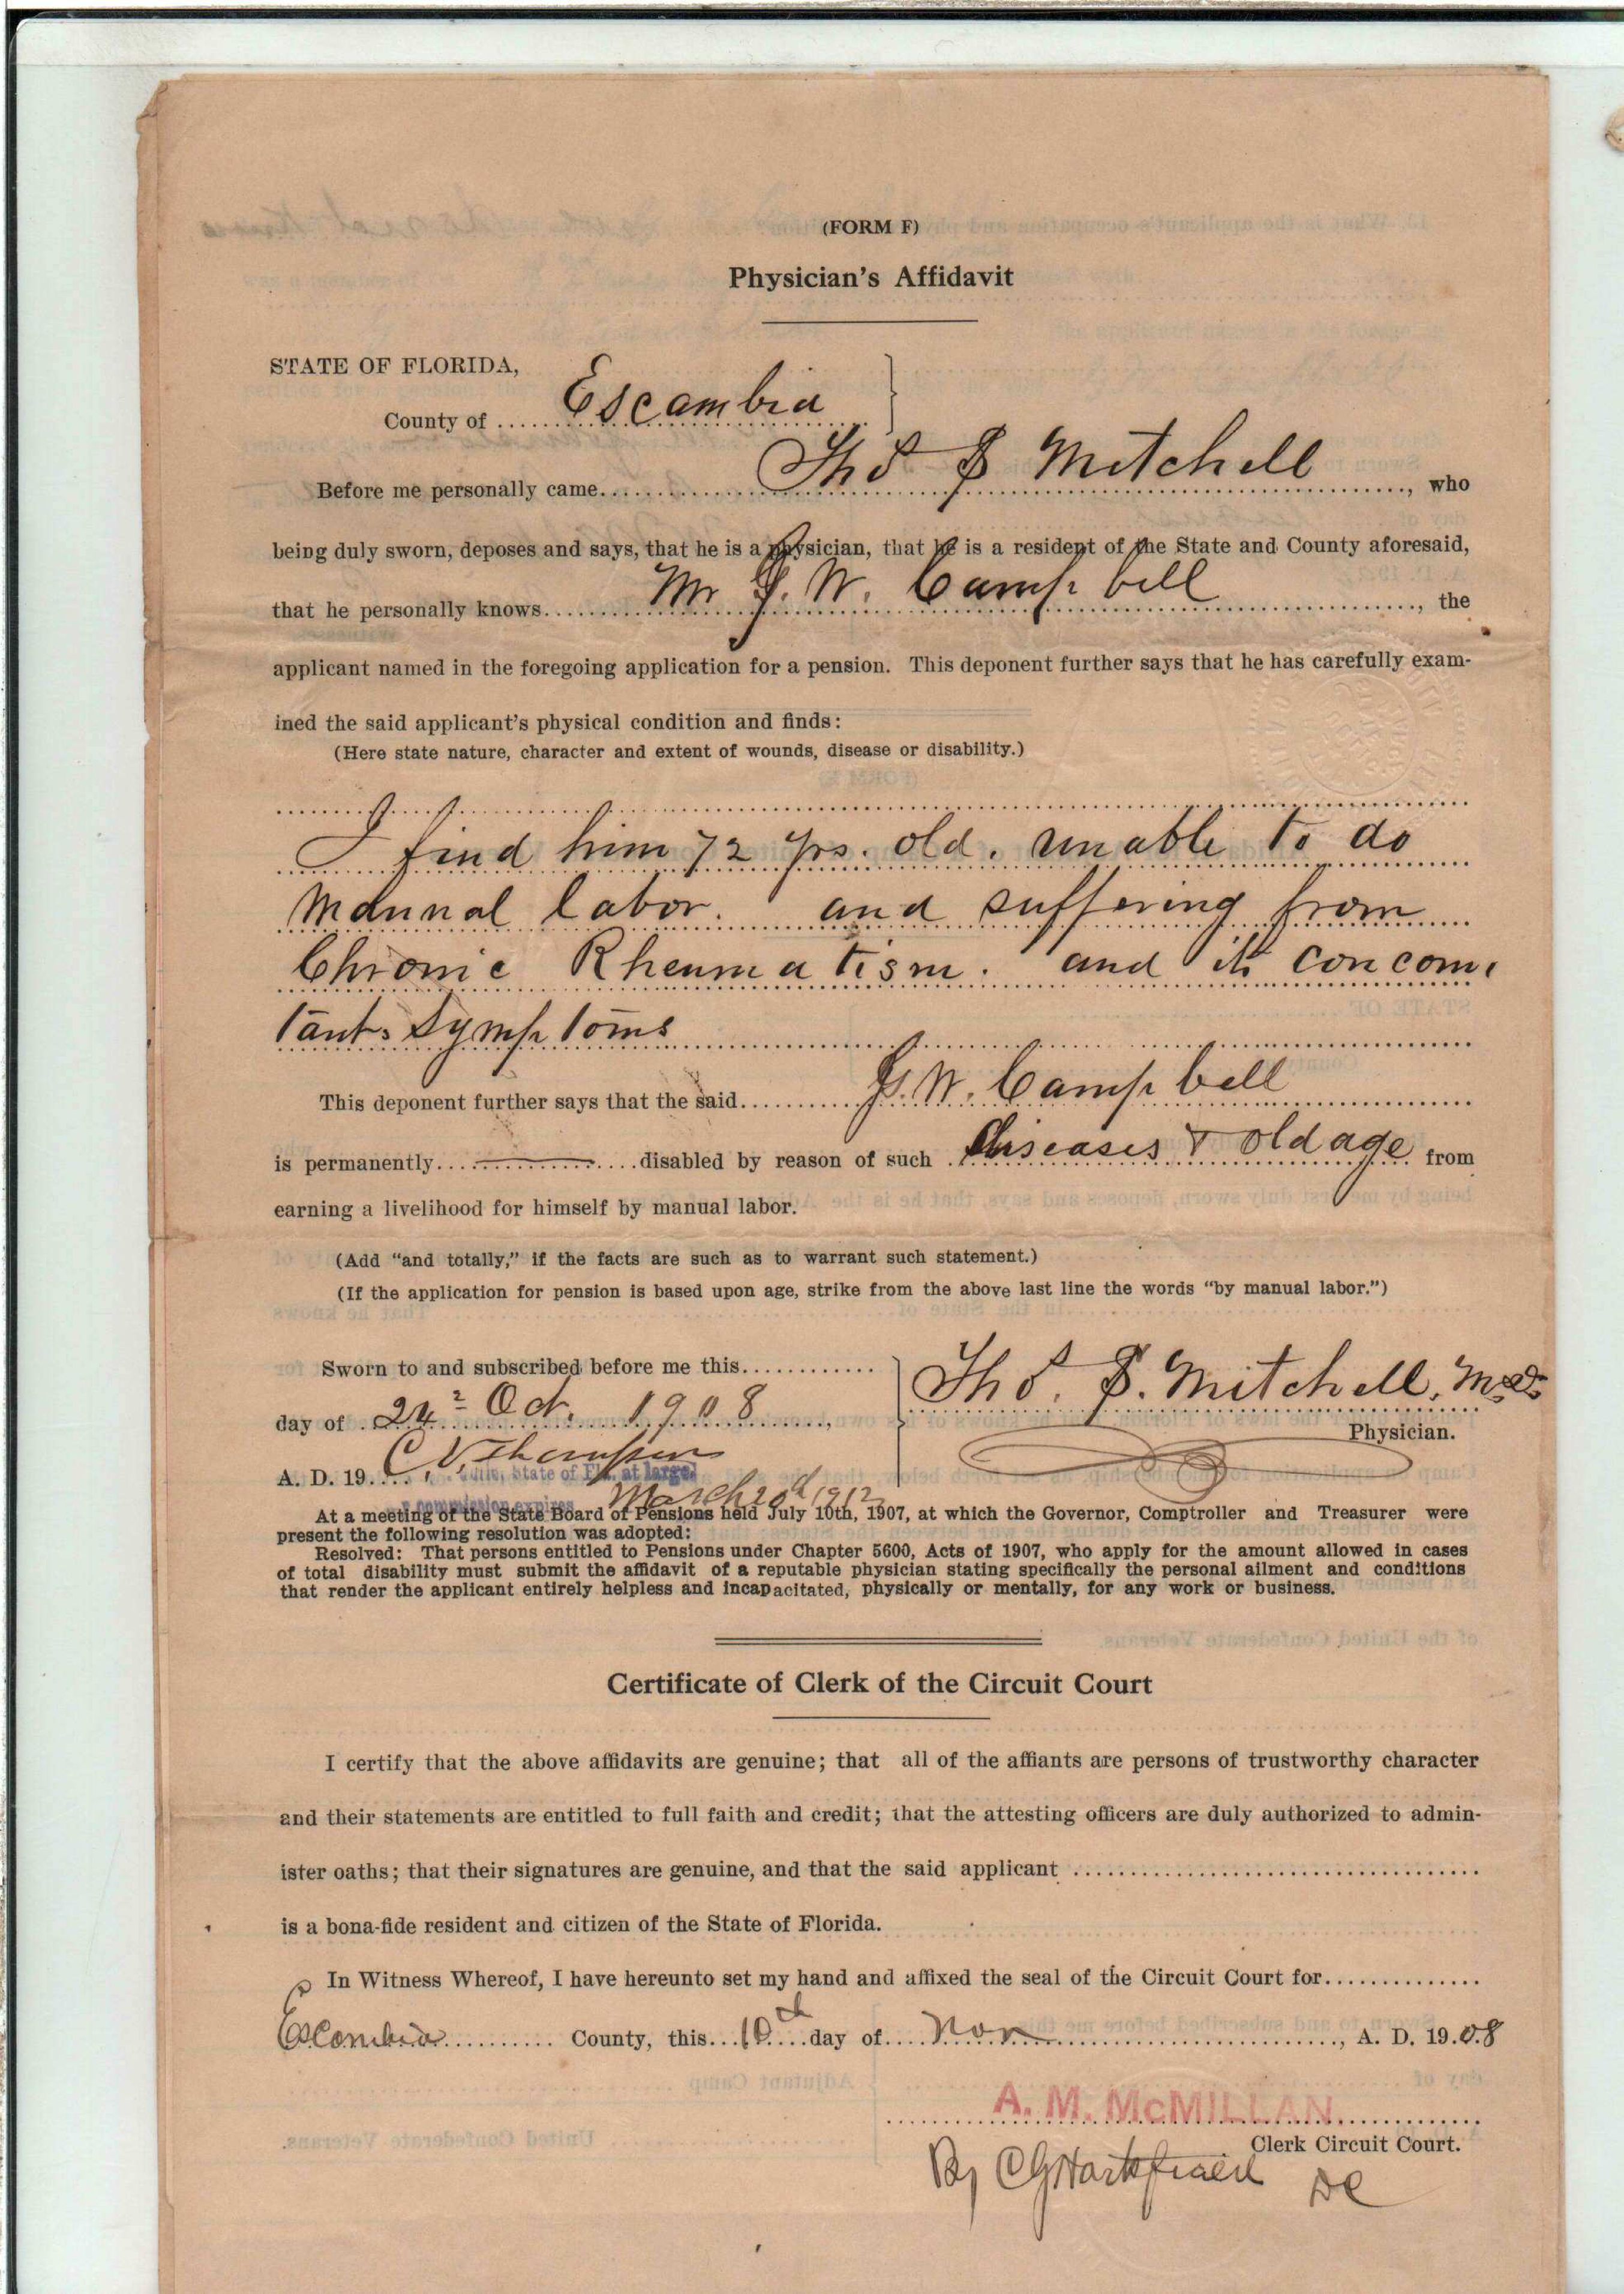 (FORM F)
Physician's Affidavit
STATE OF FLORIDA,
County of Escambia
Before me personally came Thos S Mitchell, who
being duly sworn, deposes and says, that he is a physician, that he is a resident of the State and County aforesaid,
that he personally knows Mr J. W. Campbell, the
applicant named in the foregoing application for a pension. This deponent further says that he has carefully exam-
ined the said applicant's physical condition and finds:
(Here state nature, character and extent of wounds, disease or disability.)
I find him 72 yrs. old. unable to do
Manual labor. and suffering from
Chronic Rheumatism. and its concomi
tants Symptoms
This deponent further says that the said J. W. Campbell
is permanently disabled by reason of such diseases & old age from
earning a livelihood for himself by manual labor.
(Add "and totally," if the facts are such as to warrant such statement.)
(If the application for pension is based upon age, strike from the above last line the words "by manual labor.")
Sworn to and subscribed before me this
Thos. S. Mitchell, M.D.
day of 24 Oct. 1908,
Physician.
A. D. 19
C. V. Thompson
State of Fla. at large.
commission expires March 20th 1912
At a meeting of the State Board of Pensions held July 10th, 1907, at which the Governor, Comptroller and Treasurer were
present the following resolution was adopted:
Resolved: That persons entitled to Pensions under Chapter 5600, Acts of 1907, who apply for the amount allowed in cases
of total disability must submit the affidavit of a reputable physician stating specifically the personal ailment and conditions
that render the applicant entirely helpless and incapacitated, physically or mentally, for any work or business.
Certificate of Clerk of the Circuit Court
I certify that the above affidavits are genuine; that all of the affiants are persons of trustworthy character
and their statements are entitled to full faith and credit; that the attesting officers are duly authorized to admin-
ister oaths; that their signatures are genuine, and that the said applicant
is a bona-fide resident and citizen of the State of Florida.
In Witness Whereof, I have hereunto set my hand and affixed the seal of the Circuit Court for
Escambia County, this 10th day of Nov, A. D. 1908
A. M. McMILLAN
Clerk Circuit Court.
By DC